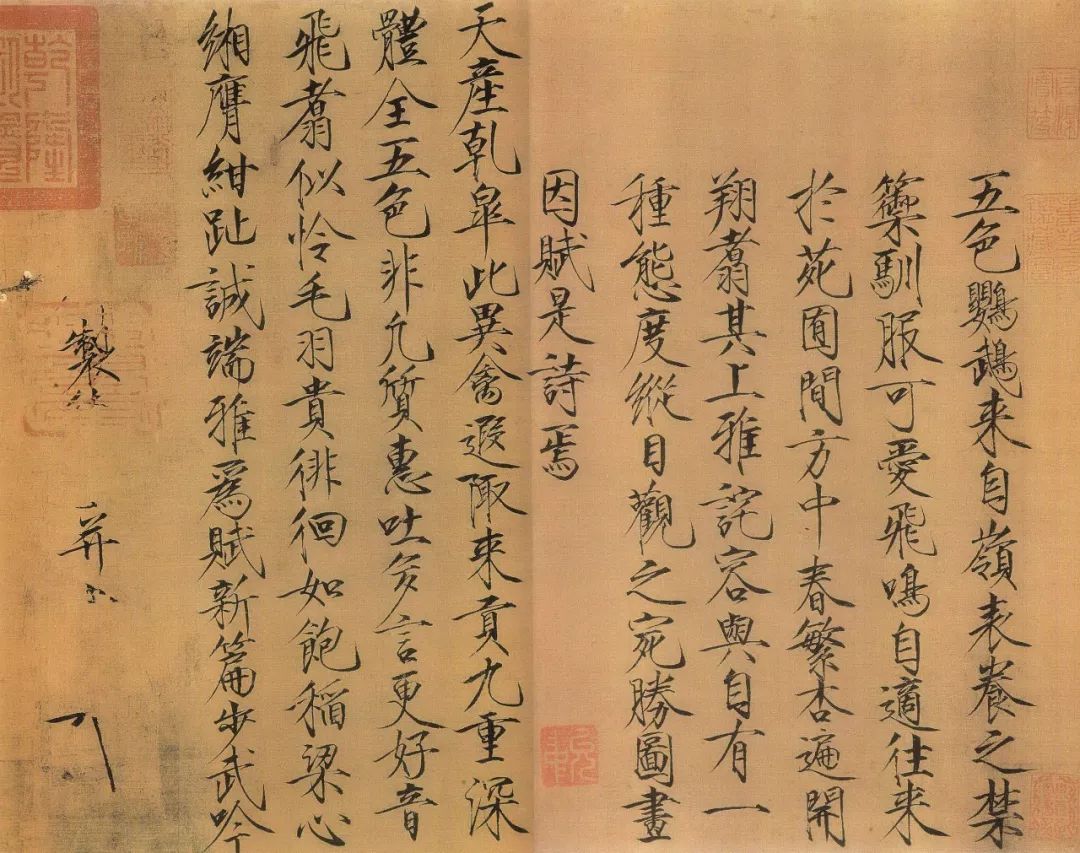 五色鸚鵡来自嶺表養之禁
籞馴服可愛飛鳴自適往来
於苑囿間方中春繁杏遍開
翔翥其上雅詫容與自有一
種態度縱目觀之宛勝圖畫
因賦是詩焉
天産乾皐此異禽遐陬来貢九重深
體全五色非凡質惠吐多言更好音
飛翥似怜毛羽貴徘徊如飽稲粱心
緗膺紺趾誠端雅爲賦新篇步武吟
製
并
乾隆